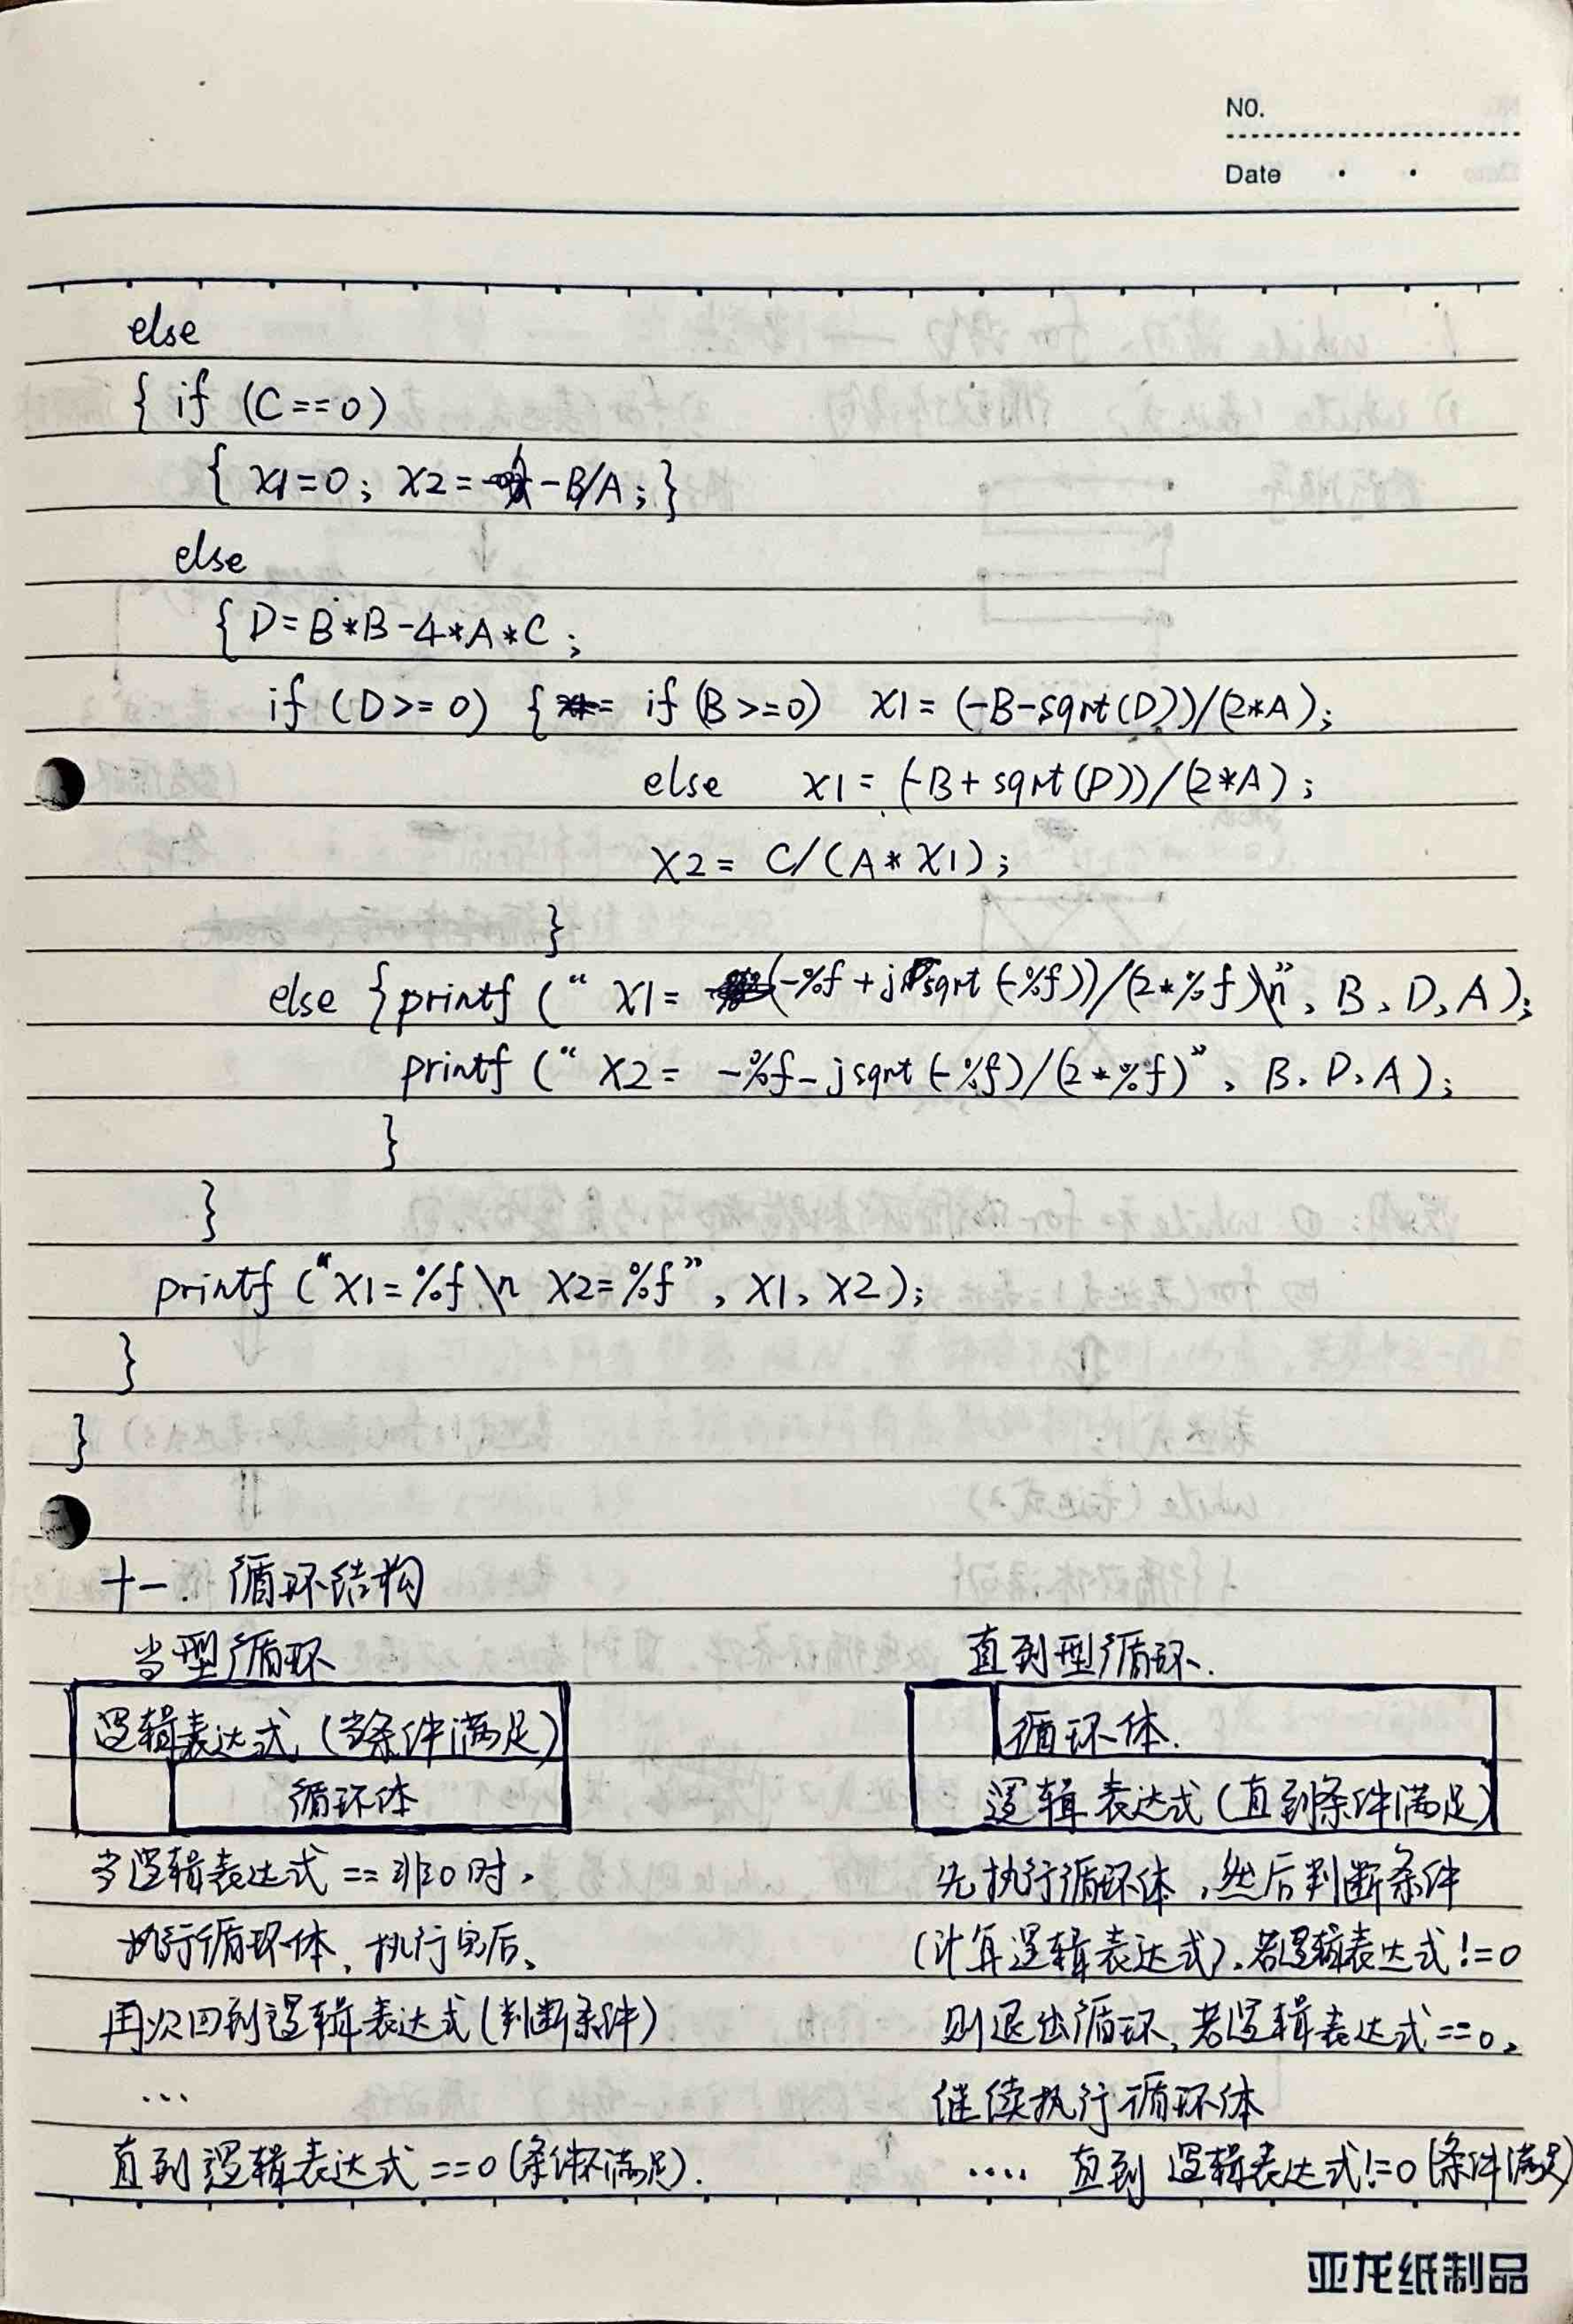 NO.
Date
else
{ if (C==0)
{ x1=0; x2= -B/A; }
else
{ D=B*B-4*A*C;
if (D>=0) { if (B>=0) x1=(-B-sqrt(D))/(2*A);
else x1=(-B+sqrt(D))/(2*A);
x2= C/(A*x1);
}
else {printf (“ x1= (-%f+j sqrt(-%f))/(2*%f)\n”, B, D, A);
printf (“ x2= -%f-jsqrt(-%f)/(2*%f)”, B, D, A);
}
}
printf (“x1=%f \n x2=%f”, x1, x2);
}
}
十一. 循环结构
当型循环
逻辑表达式 (当条件满足)
循环体
当逻辑表达式 == 非0时,
执行循环体、执行完后、
再次回到逻辑表达式(判断条件)
...
直到逻辑表达式 ==0 (条件不满足).
直到型循环.
循环体.
逻辑表达式(直到条件满足)
先执行循环体,然后判断条件
(计算逻辑表达式),若逻辑表达式!=0
则退出循环,若逻辑表达式==0,
继续执行循环体
.... 直到 逻辑表达式!=0 (条件满足)
亚龙纸制品